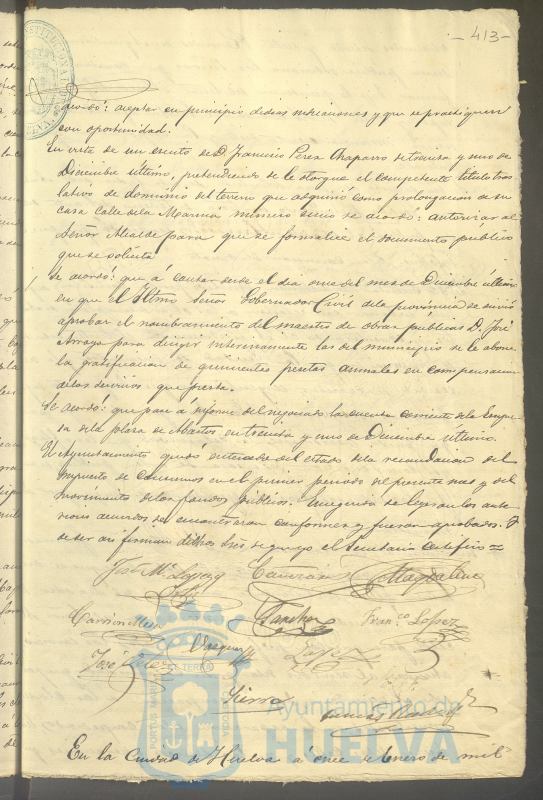 -413-
acordó: aceptar en principio dichas indicaciones y que se practiquen
con oportunidad.
En vista de un escrito de D. Francisco Perez Chaparro de treinta y uno de
Diciembre último, pretendiendo se le otorgue el competente titulo tras
lativo de dominio del terreno que adquirió como prolongacion de su
casa Calle de la Marina número se acordó: autorizar al
Señor Alcalde para que se formalice el documento público
que se solicita
Se acordó: que á contar desde el dia once del mes de Diciembre último
en que el Iltmo Señor Gobernador Civil de la provincia se sirvió
aprobar el nombramiento del maestro de obras públicas D. José
Arroyo para dirijir interinamente las del municipio se le abone
la gratificacion de quinientas pesetas anuales en compensacion
de los servicios que presta.
Se acordó: que pase á informe del negociado la cuenta corriente de la Empre
sa de la plaza de Abastos en treinta y uno de Diciembre último.
El Ayuntamiento quedó enterado del estado de la recaudacion del
impuesto de consumos en el primer periodo del presente mes y del
movimiento de los fondos públicos. En seguida se leyeron los ante
riores acuerdos se encontraron conformes y fueron aprobados. Y
de ser asi firman dichos Sres de que yo el Secretario certifico =
José Mª Lopez
Magdalena
Sanchez
Franco Lopez
José
Lopez
Sierra
PORTUS MARIS ET TERRAE CUSTODIA
Ayuntamiento de
HUELVA
En la Ciudad de Huelva á once de Enero de mil